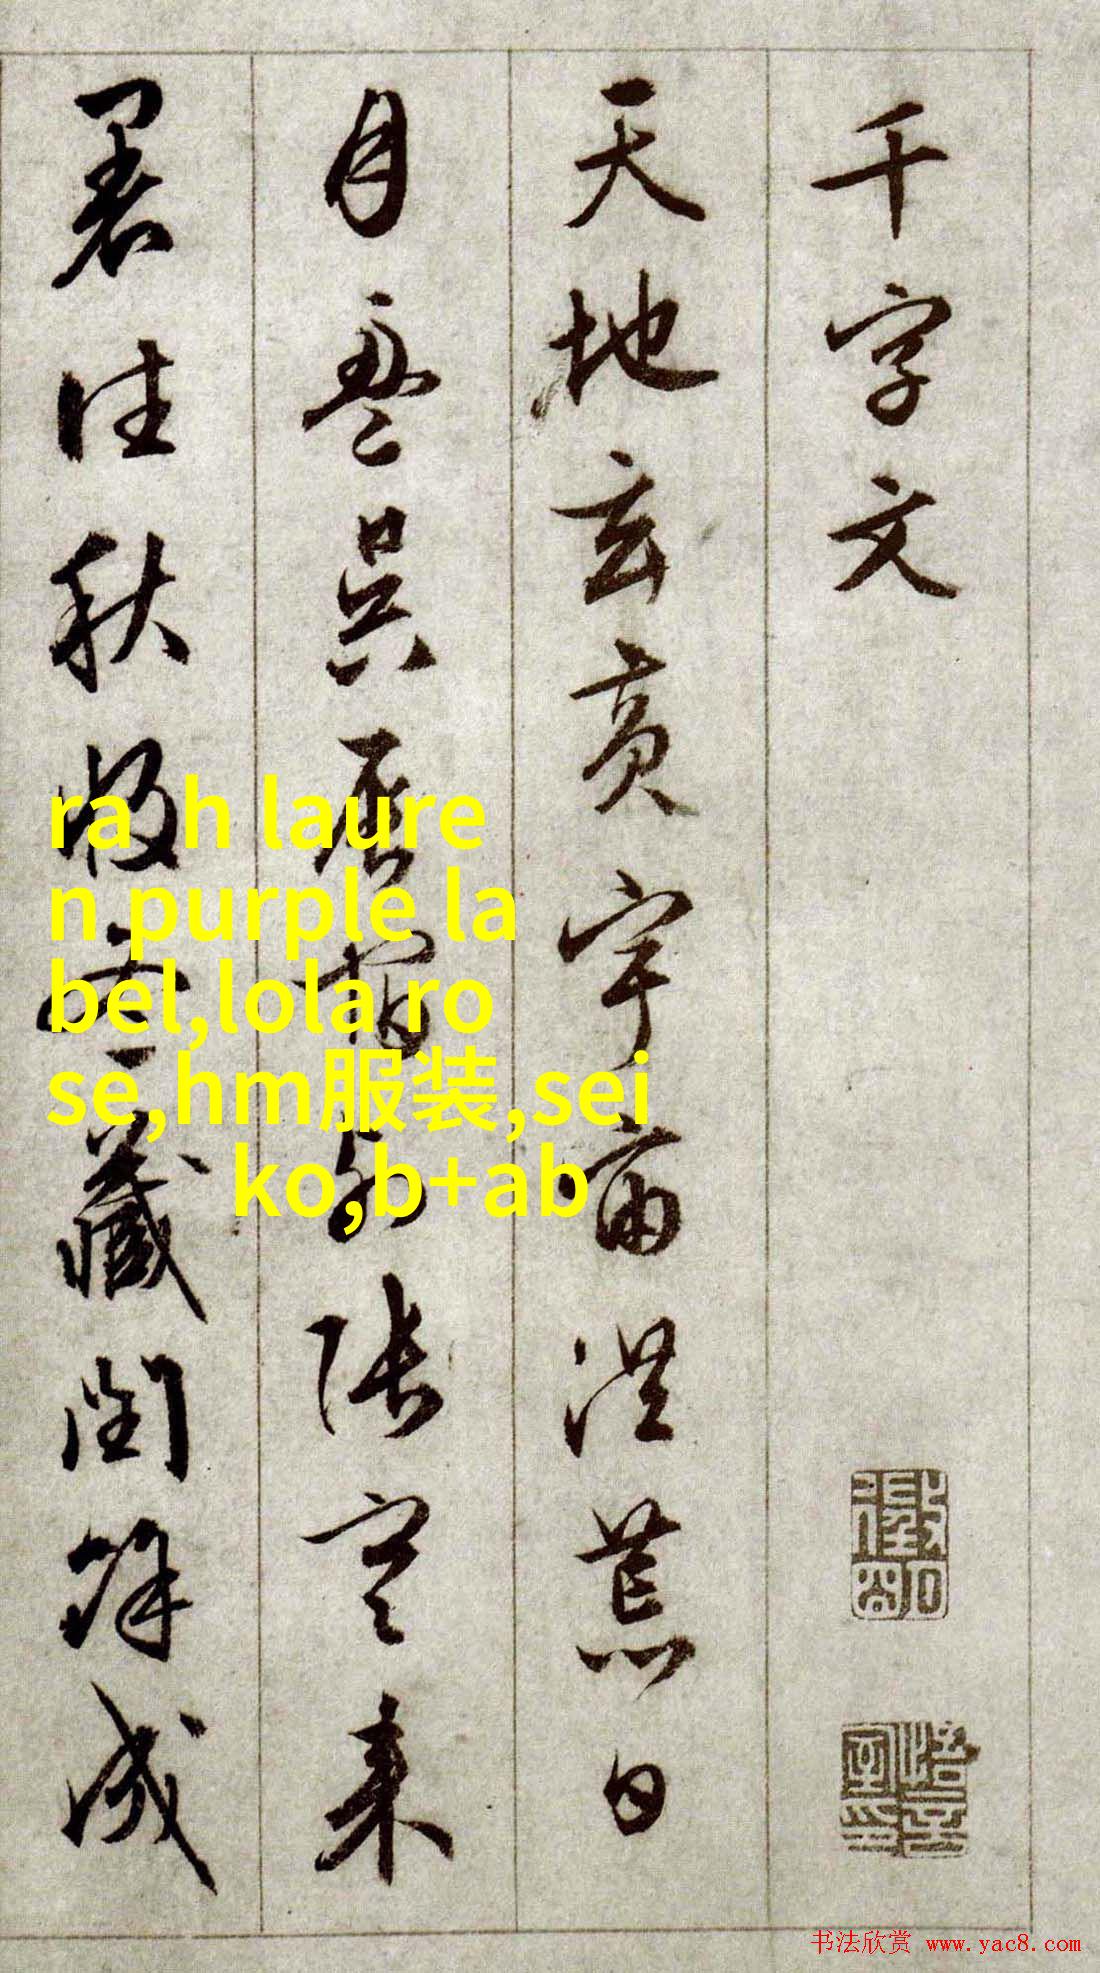 千字文
天地玄黄宇宙洪荒日
月盈昃辰宿列张寒来
暑往秋收冬藏闰余成
ralph laure
n purple la
bel,lola ro
se,hm服装,sei
ko,b+ab
书法欣赏 www.yac8.com